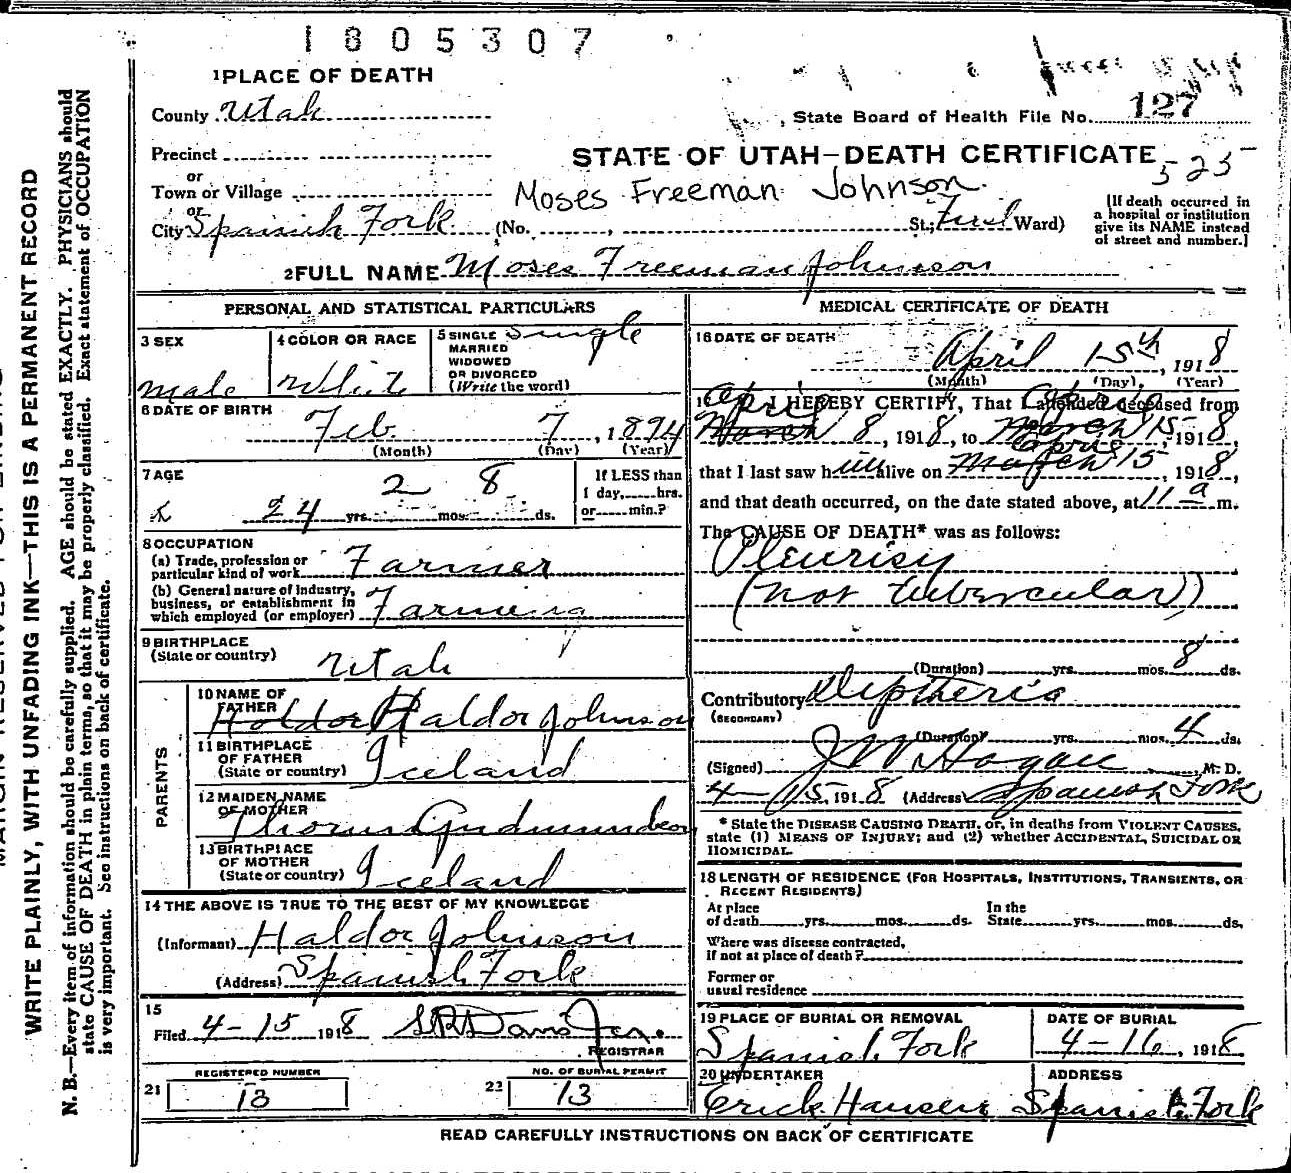 1805307
1 PLACE OF DEATH
County Utah
State Board of Health File No. 127
Precinct
STATE OF UTAH—DEATH CERTIFICATE
525
or
Town or Village
Moses Freeman Johnson.
or
City Spanish Fork (No. , St.; Ward)
[If death occurred in
a hospital or institution
give its NAME instead
of street and number.]
2 FULL NAME Moses Freeman Johnson
PERSONAL AND STATISTICAL PARTICULARS
3 SEX
male
4 COLOR OR RACE
White
5 SINGLE
MARRIED
WIDOWED
OR DIVORCED
(Write the word)
Single
6 DATE OF BIRTH
Feb. 7, 1894
(Month) (Day) (Year)
7 AGE
24 yrs. 2 mos. 8 ds.
If LESS than
1 day, hrs.
or min.?
8 OCCUPATION
(a) Trade, profession or
particular kind of work Farmer
(b) General nature of industry,
business, or establishment in
which employed (or employer) Farming
9 BIRTHPLACE
(State or country)
Utah
PARENTS
10 NAME OF
FATHER
Holdor Haldor Johnson
11 BIRTHPLACE
OF FATHER
(State or country) Iceland
12 MAIDEN NAME
OF MOTHER
Gudmundson
13 BIRTHPLACE
OF MOTHER
(State or country) Iceland
14 THE ABOVE IS TRUE TO THE BEST OF MY KNOWLEDGE
(Informant) Haldor Johnson
(Address) Spanish Fork
15
Filed 4-15 1918
REGISTRAR
REGISTERED NUMBER
21 13
NO. OF BURIAL PERMIT
22 13
MEDICAL CERTIFICATE OF DEATH
16 DATE OF DEATH
April 15th, 1918
(Month) (Day) (Year)
April April
I HEREBY CERTIFY, That I attended deceased from
March 8, 1918, to March 15, 1918,
April
that I last saw him alive on March 15, 1918,
and that death occurred, on the date stated above, at 11 a m.
The CAUSE OF DEATH* was as follows:
Pleurisy
(not tubercular)
(Duration) yrs. mos. 8 ds.
Contributory Diptheria
(SECONDARY)
(Duration) yrs. mos. 4 ds.
(Signed) J W Hagan, M. D.
4-15, 1918 (Address) Spanish Fork
* State the DISEASE CAUSING DEATH, or, in deaths from VIOLENT CAUSES,
state (1) MEANS OF INJURY; and (2) whether ACCIDENTAL, SUICIDAL OR
HOMICIDAL.
18 LENGTH OF RESIDENCE (FOR HOSPITALS, INSTITUTIONS, TRANSIENTS, OR
RECENT RESIDENTS)
At place
of death yrs. mos. ds.
In the
State yrs. mos. ds.
Where was disease contracted,
If not at place of death?
Former or
usual residence
19 PLACE OF BURIAL OR REMOVAL
Spanish Fork
DATE OF BURIAL
4-16, 1918
20 UNDERTAKER
Erick Hansen
ADDRESS
Spanish Fork
READ CAREFULLY INSTRUCTIONS ON BACK OF CERTIFICATE
WRITE PLAINLY, WITH UNFADING INK—THIS IS A PERMANENT RECORD
N. B.—Every item of information should be carefully supplied. AGE should be stated EXACTLY. PHYSICIANS should
state CAUSE OF DEATH in plain terms, so that it may be properly classified. Exact statement of OCCUPATION
is very important. See instructions on back of certificate.